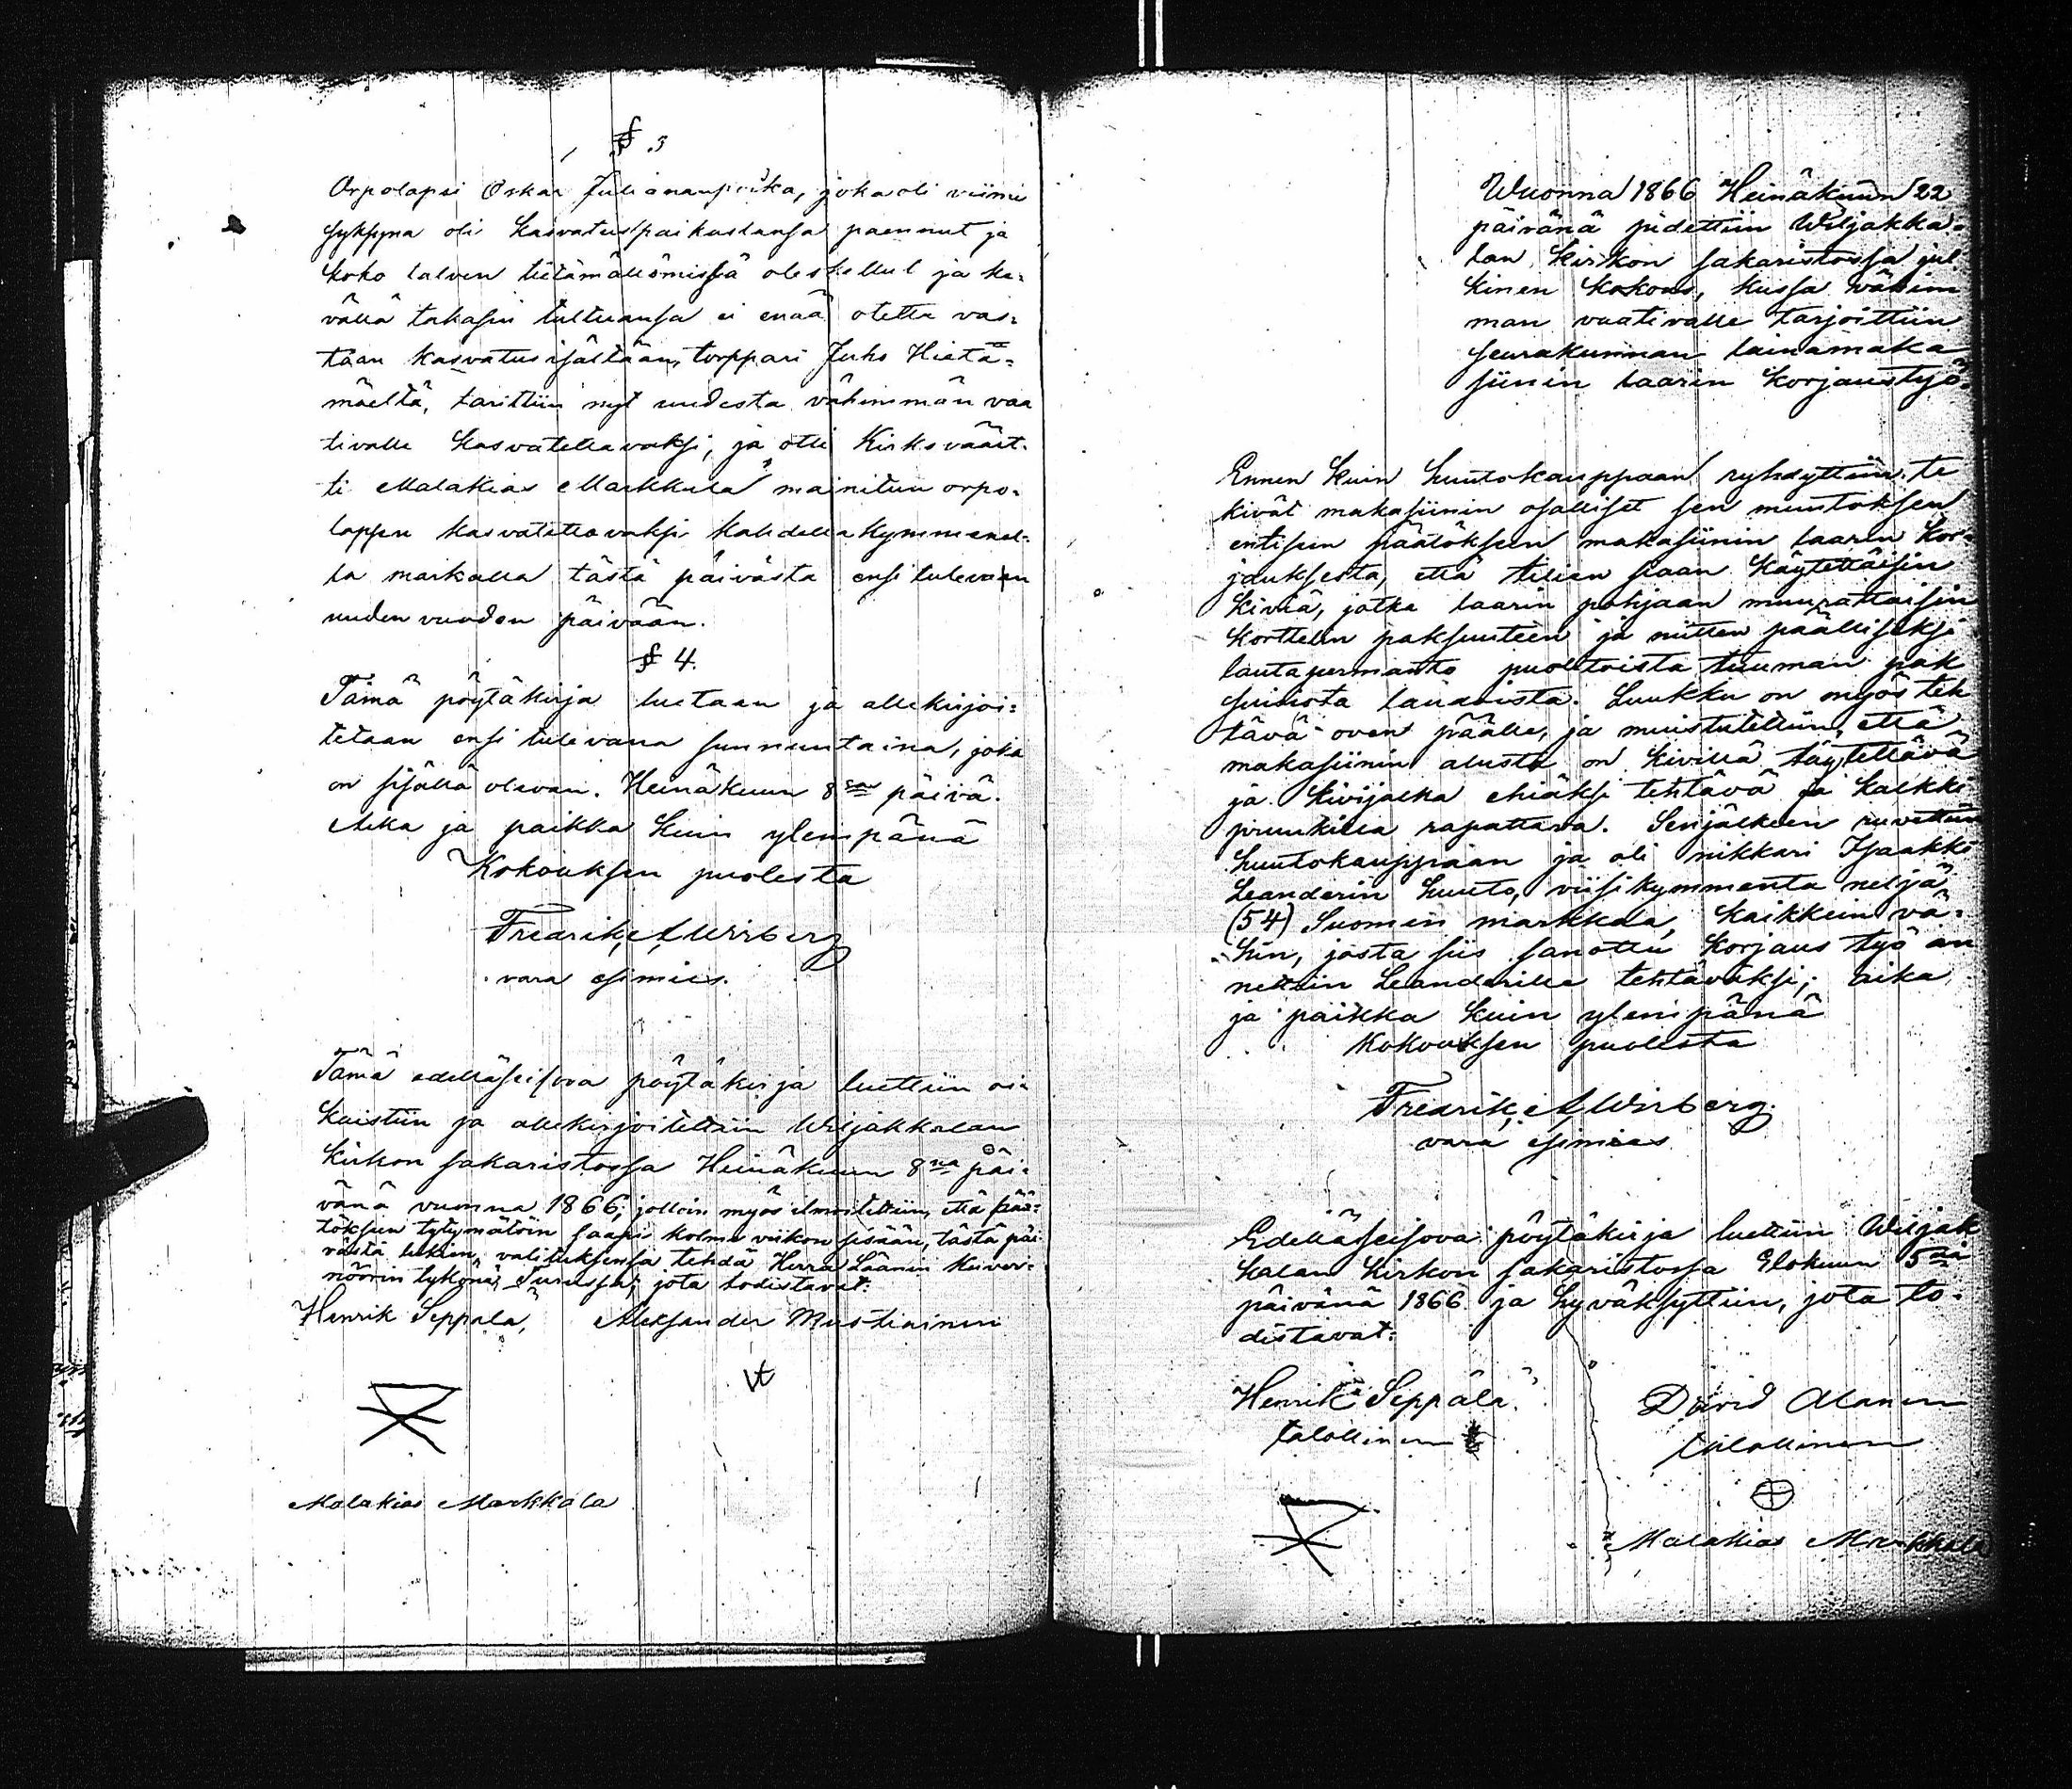 § 3
Orpolapsi Oskar Juliananpoika, joka oli viime
syksynä oli kasvatuspaikastansa paennut ja
koko talven tietämättömissä oleskellut ja ke-
vällä takasin tultuansa ei enää otettu vas-
taan kasvatusisältään, torppari Juho Hietä-
mäeltä, tarittiin nyt uudesta vähimmän vaa
tivalle kasvatettavaksi, ja otti Kirkovääst-
ti Malakias Markkula mainitun orpo-
lapsen kasvatettavaksi kahdellakymmenel-
lä markalla tästä päivästä ensi tulevaan
uuden vuoden päivään.
§ 4.
Tämä pöytäkirja luetaan ja allekirjoi-
tetaan ensi tulevana sunnuntaina, joka
on sisällä olevan Heinäkuun 8san päivä.
Aika ja paikka kuin ylempänä
Kokouksen puolesta
Fredrik A Wirberg
vara esimies.
Tämä edelläseisova pöytäkirja luettiin oi-
kaistiin ja allekirjoitettiin Wiljakkalan
kirkon sakaristossa Heinäkuun 8na päi-
vänä vuonna 1866; jolloin myös ilmoitettiin, että pää-
töksen tytymätöin saapi kolme viikon sisään, tästä päi
västä lukien, valituksensa tehdä Herra Läänin Kuver-
nöörin tykönä Turussa; jota todistavat:
Henrik Seppälä, Aleksander Mustiainen
Malakias Markkala
Wuonna 1866 Heinäkuun 22
päivänä pidettiin Wiljakka-
lan kirkon sakaristossa jul
kinen kokous, kussa vähim
män vaativalle tarjoittiin
seurakunnan lainamaka
siinin laarin korjaustyö.
Ennen kuin huutokauppaan ryhdyttiin, te
kivät makasiinin osalliset sen muutoksen
entiseen päätökseen makasiinin laarin kor-
jauksesta, että tilien siaan käytettäisin
kiviä, jotka laarin pohjaan muurattaisin
korttelin paksuuteen ja niitten päälliseksi
lautapermanto puoltoista tuuman pak
suisista laudoista. Luukku on myös teh
tävä oven päälle, ja muistutettiin, että
makasiinin alusta on kivillä täytettävä
ja kivijalka ehiäksi tehtävä ja kalkki
pruukilla rapattava. Senjälkeen ruvettiin
huutokauppaan ja oli nikkari Isaakki
Leanderin huuto, viisikymmentä neljä
(54) Suomen markkaa, kaikkein vä-
hin, josta siis sanottu korjaus työ an
nettiin Leanderille tehtäväksi; aika
ja paikka kuin ylempänä
Kokouksen puolesta
Fredrik A Wirberg
vara esimies
Edelläseisova pöytäkirja luettiin Wiljak
kalan kirkon sakaristossa Elokuun 5nä
päivänä 1866 ja hyväksyttiin, jota to-
distavat:
Henrik Seppälä. David Alanen
talollinen talollinen
Malakias Markkala